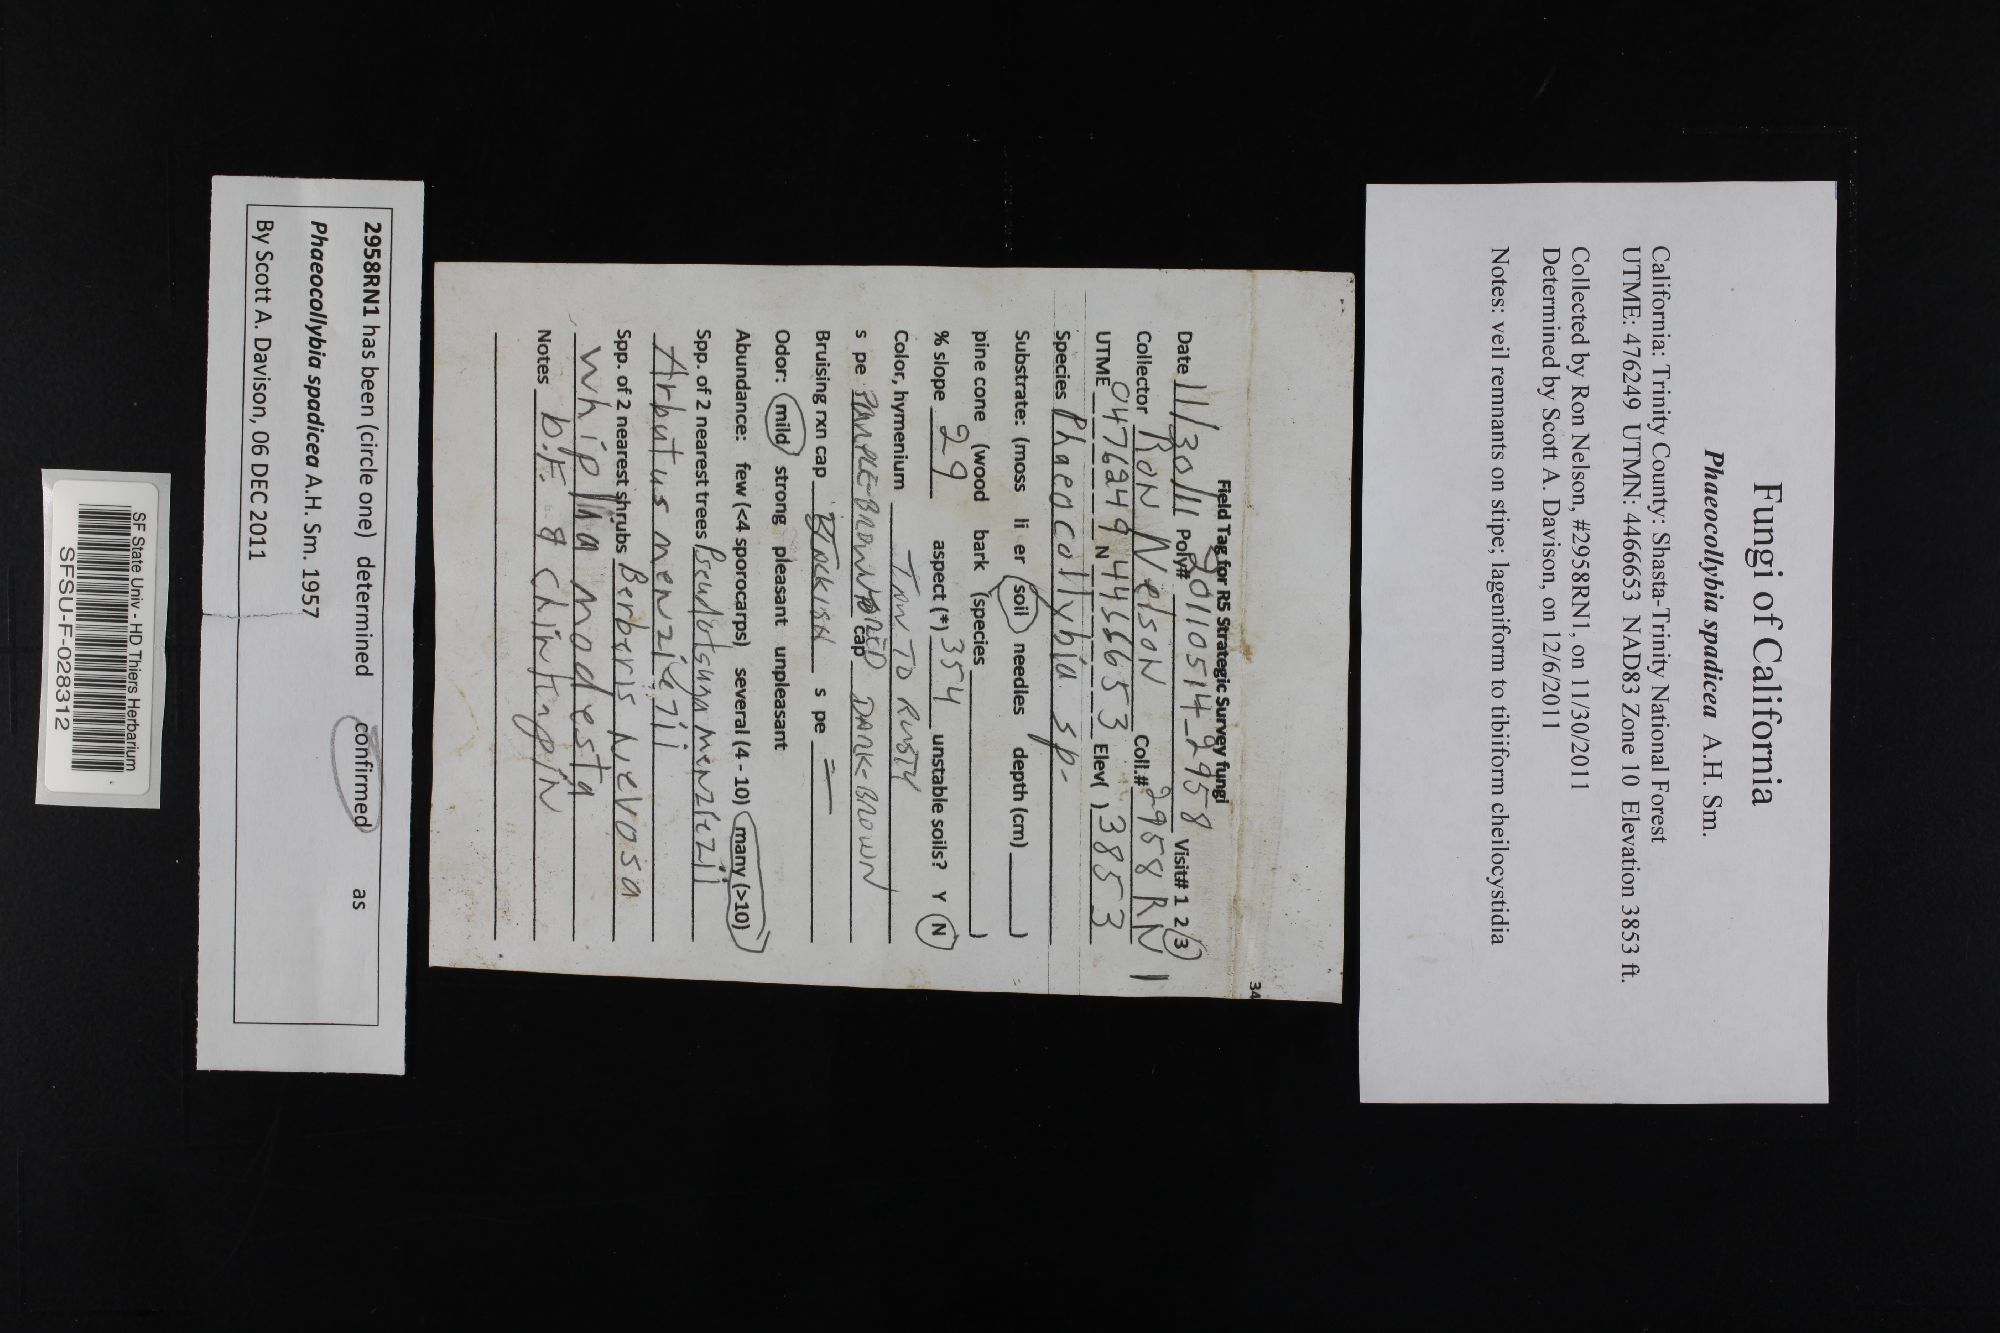 Fungi of California
Phaeocollybia spadicea A.H. Sm.
California: Trinity County: Shasta-Trinity National Forest
UTME: 476249 UTMN: 4466653 NAD83 Zone 10 Elevation 3853 ft.
Collected by Ron Nelson, #2958RN1, on 11/30/2011
Determined by Scott A. Davison, on 12/6/2011
Notes: veil remnants on stipe; lageniform to tibiiform cheilocystidia
34
Field Tag for R5 Strategic Survey fungi
Date 11/30/11 Poly# 20110514-2958 Visit# 1 2 3
Collector RON Nelson Coll.# 2958RN1
UTME 0476249 N 4466653 Elev( ) 3853
Species Phaeocollybia sp.
Substrate: (moss li er soil needles depth (cm) )
pine cone (wood bark (species )
% slope 29 aspect (*) 354 unstable soils? Y N
Color, hymenium TAN TO RUSTY
s pe PURPLE-BROWN RED cap DARK-BROWN
Bruising rxn cap BLACKISH s pe =
Odor: mild strong pleasant unpleasant
Abundance: few (<4 sporocarps) several (4 - 10) many (>10)
Spp. of 2 nearest trees Pseudotsuga menziezii
Arbutus menziezii
Spp. of 2 nearest shrubs Berberis Nevosa
Whipplia modesta
Notes D.F. & Chintinpin
2958RN1 has been (circle one) determined confirmed as
Phaeocollybia spadicea A.H. Sm. 1957
By Scott A. Davison, 06 DEC 2011
SF State Univ - HD Thiers Herbarium
SFSU-F-028312